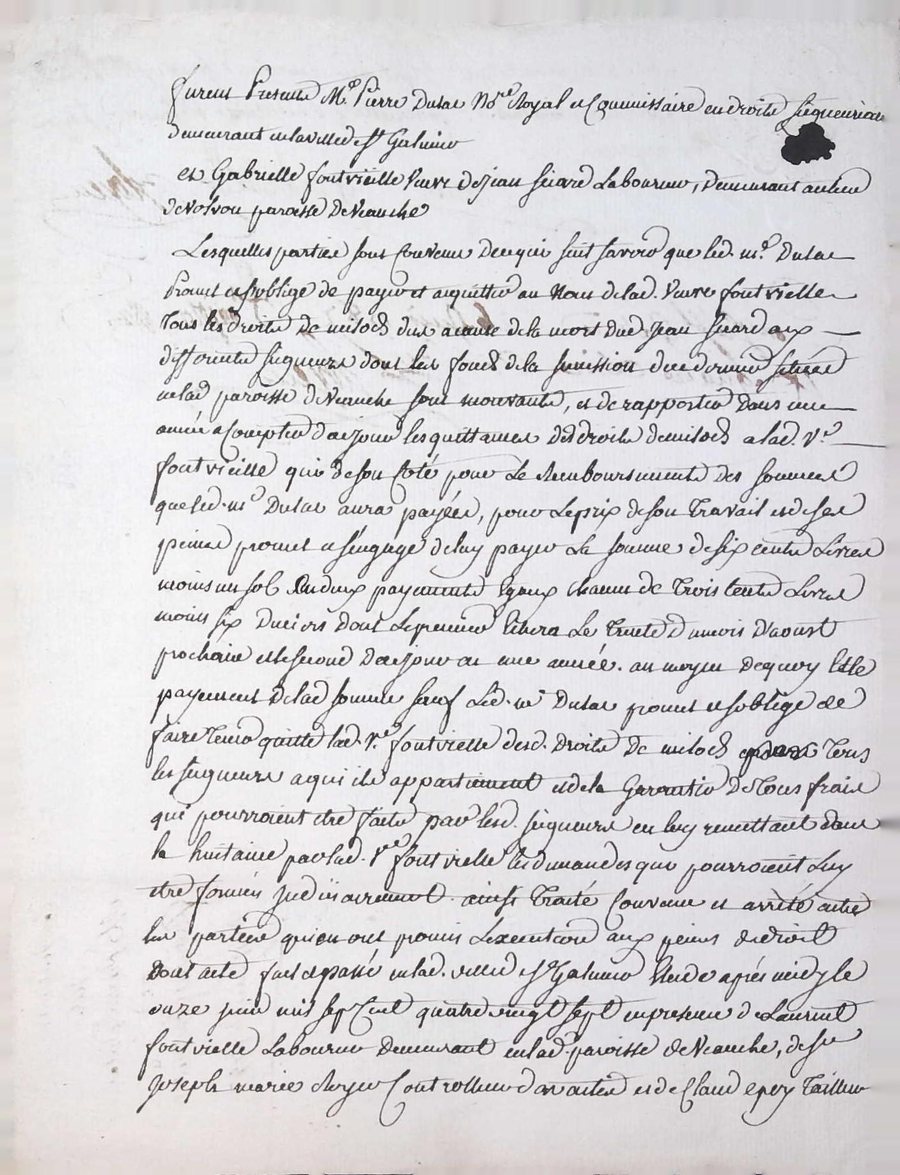 furent Presents Me Pierre Dulac Nore Royal et Commissaire en droits seigneuriaux
demeurant en la ville de St Galmier
et Gabrielle fontvieille veuve de jean siard Laboureur, demeurant au lieu
de volvon paroisse de Veauche
Lesquelles parties sont convenu de ce qui suit savoir que led. me. Dulac
Promet et s'oblige de payer et acquitter au Nom de lad. veuve fontvielle
Tous les droits de milods dus a cause de la mort dud jean siard aux
differents seigneurs dont les fonds de la succession de ce dernier situés
en lad paroisse de Veauche sont mouvants, et de rapporter dans une
année a Compter de ce jour les quittances des droits de milods a lad. ve.
fontvieille qui de son Coté pour Le Remboursement des sommes
que led. me Dulac aura payées, pour Le prix de son Travail et de ses
peines promet et s'engage de luy payer La somme de six cents Livres
moins un sol En deux payements Egaux chacun de Trois Cents Livres
moins six deniers dont Le premier Echera Le Trente du mois D'aoust
prochain et le second de ce jour en une année. au moyen de quoy Et le
payement de lad somme sauf Led. me Dulac promet et s'oblige de
faire Tenir quitte lad. ve fontvielle desd. Droits De milods Tous
les seigneurs a qui ils appartiennent et de la Garantir De Tous frais
qui pourroient etre faits par lesd. seigneurs en luy remettant dans
la huitaine par lad. ve fontvielle les demandes qui pourroient Luy
etre formées judiciairement. ainsi Traité Convenu et arrêté entre
les parties qui en ont promis L'execution aux peines de droit
Dont acte fait et passé en lad. ville de St Galmier Etude après midy le
onze juin mil sept Cent quatre vingt sept en presence de Laurent
fontvielle Laboureur Demeurant en lad. paroisse de Veauche, de sr
joseph marie Royer Controlleur des actes et de Claude epoy Tailleur